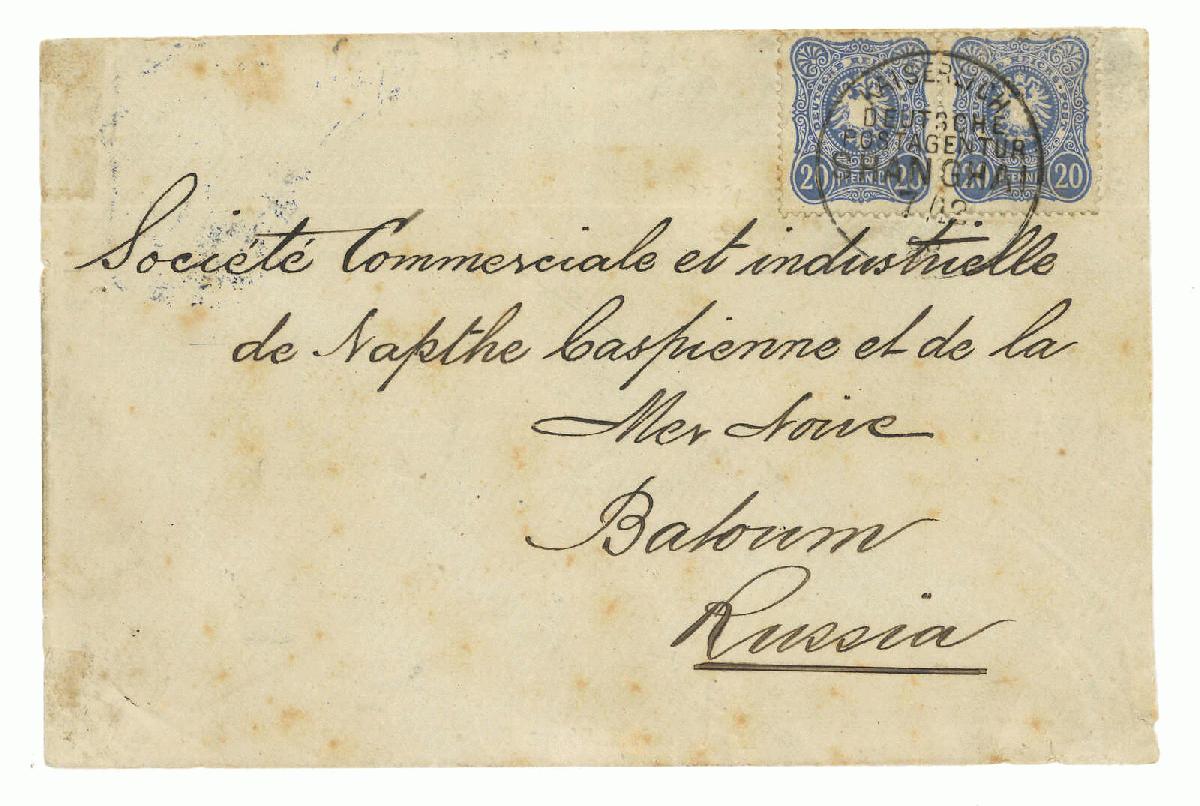 KAISERLICH
DEUTSCHE
POSTAGENTUR
SHANGHAI
20 PFENNIG 20
20 PFENNIG 20
Société Commerciale et industrielle
de Napthe Caspienne et de la
Mer Noire
Batoum
Russia